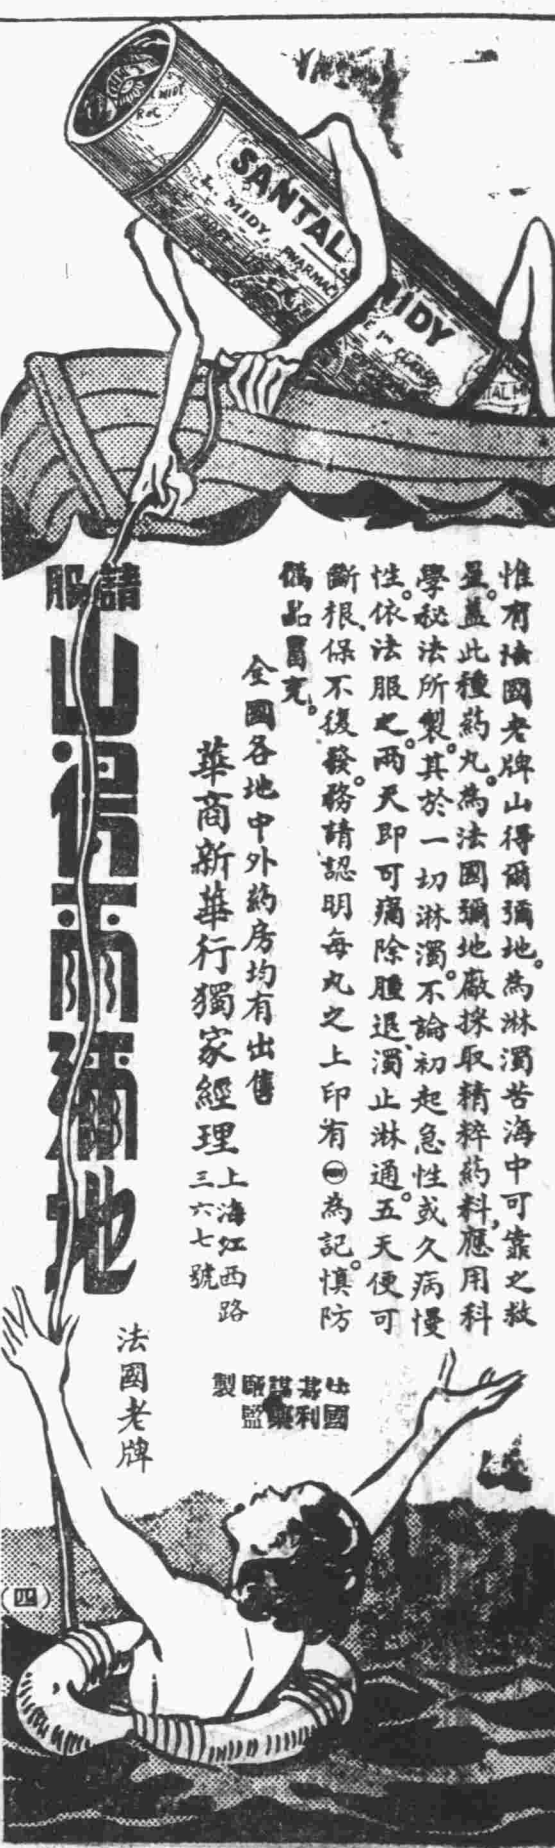 MIDY
R & C
SANTAL MIDY
L. MIDY, PHARMAC
DE 1re CLASSE
惟有法國老牌山得爾彌地。為淋濁苦海中可靠之救
星。蓋此種葯丸。為法國彌地廠採取精粹葯料，應用科
學秘法所製。其於一切淋濁。不論初起急性或久病慢
性。依法服之。兩天即可痛除腫退、濁止淋通。五天便可
斷根、保不復發。務請認明每丸之上印有 為記。慎防
僞品冒充。
全國各地中外葯房均有出售
華商新華行獨家經理
上海江西路
三六七號
請服
山得爾彌地
法國老牌
法國
製
(四)